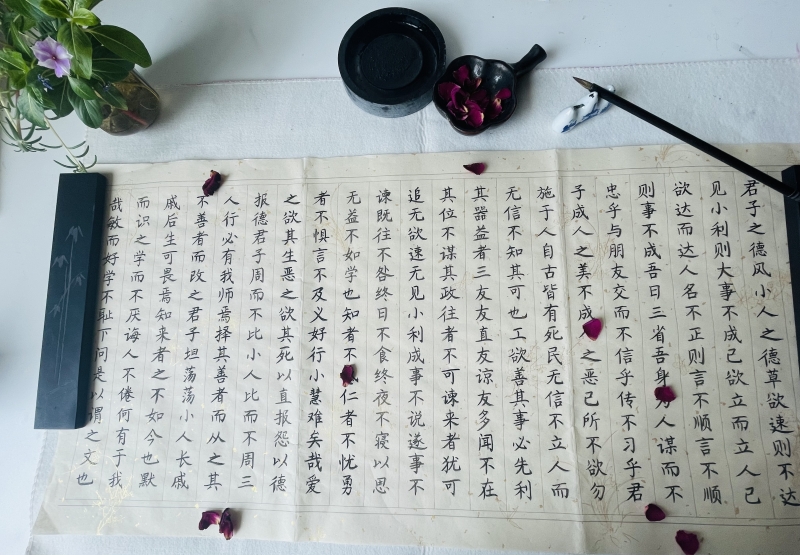 君子之德风小人之德草欲速则不达
见小利则大事不成己欲立而立人己
欲达而达人名不正则言不顺言不顺
则事不成吾日三省吾身为人谋而不
忠乎与朋友交而不信乎传不习乎君
子成人之美不成之恶己所不欲勿
施于人自古皆有死民无信不立人而
无信不知其可也工欲善其事必先利
其器益者三友友直友谅友多闻不在
其位不谋其政往者不可谏来者犹可
追无欲速无见小利成事不说遂事不
谏既往不咎终日不食终夜不寝以思
无益不如学也知者不仁者不忧勇
者不惧言不及义好行小慧难矣哉爱
之欲其生恶之欲其死以直报怨以德
报德君子周而不比小人比而不周三
人行必有我师焉择其善者而从之其
不善者而改之君子坦荡荡小人长戚
戚后生可畏焉知来者之不如今也默
而识之学而不厌诲人不倦何有于我
哉敏而好学不耻下问是以谓之文也